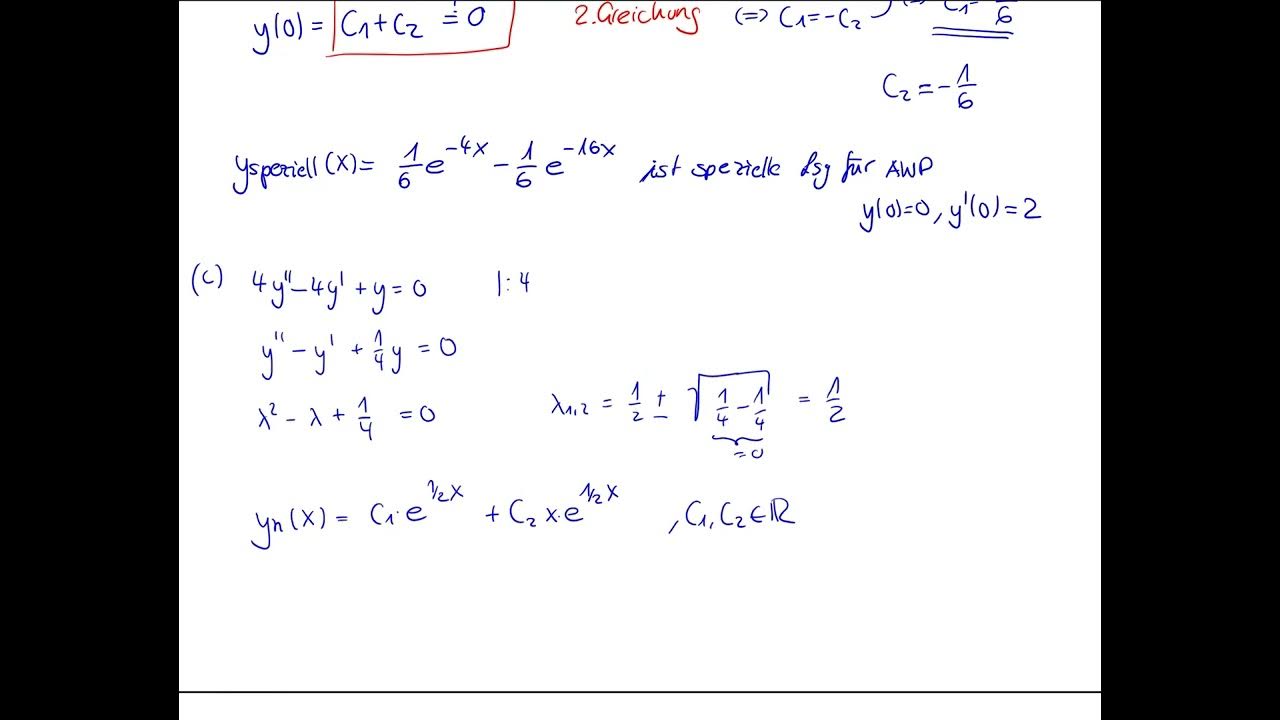 y(0) = C₁+C₂ ≐ 0 2.Gleichung (=> C₁=-C₂
C₂ = -1/6
yspeziell(x)= 1/6 e^-4x - 1/6 e^-16x ist spezielle Lsg für AWP
y(0)=0, y'(0)=2
(c) 4y''-4y'+y=0 |:4
y''-y'+1/4y=0
λ²-λ+1/4=0 λ₁,₂ = 1/2 ± √(1/4-1/4) = 1/2
=0
yh(x) = C₁·e^1/2x + C₂x·e^1/2x , C₁,C₂∈ℝ